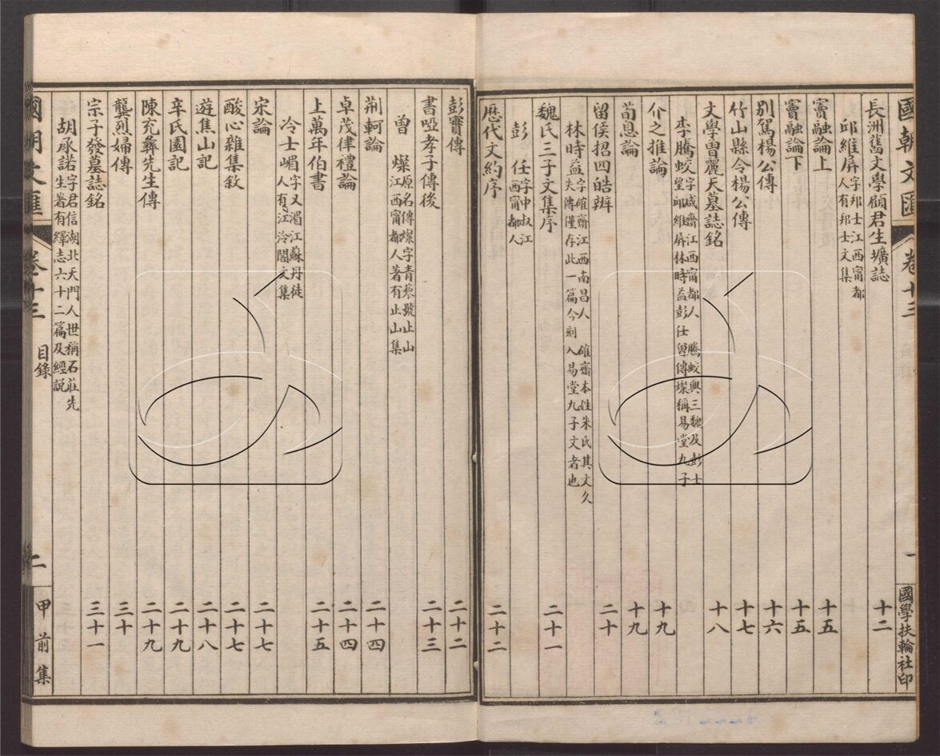 國朝文匯 卷十三 一 國學扶輪社印
長洲舊文學顧君生壙誌 十二
邱維屏 字邦士江西甯都人有邦士文集
竇融論上 十五
竇融論下 十五
別駕楊公傳 十六
竹山縣令楊公傳 十七
文學曾麗天墓誌銘 十八
李騰蛟 字咸齋江西甯都人 騰蛟與三魏及彭士望邱維屏林時益彭任曾傳燦稱易堂九子
介之推論 十九
荀息論 十九
留侯招四皓辨 二十
林時益 字確齋江西南昌人 確齋本姓朱氏其文久失傳僅存此一篇今刻入易堂九子文者也
魏氏三子文集序 二十一
彭任 字中叔江西甯都人
歷代文約序 二十二
彭寶傳 二十二
書啞孝子傳後 二十三
曾燦 原名傳燦字青藜號止山江西甯都人著有止山集
荆軻論 二十四
卓茂律禮論 二十四
上萬年伯書 二十五
冷士嵋 字又湄江蘇丹徒人有江泠閣文集
宋論 二十七
酸心雜集敘 二十七
遊焦山記 二十八
辛氏園記 二十九
陳充彝先生傳 二十九
龔烈婦傳 三十
宗子發墓誌銘 三十一
胡承諾 字君信湖北天門人世稱石莊先生著有繹志六十二篇及經説
國朝文匯 卷十三 目錄 二 甲前集